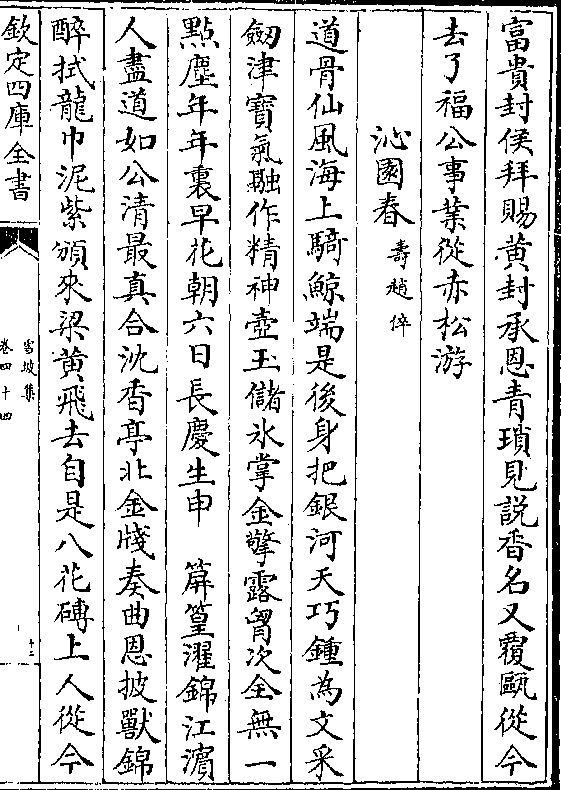 富貴封侯拜賜黃封承恩青瑣見説香名又覆甌從今
去了福公事業從赤松游
沁園春壽趙倅
道骨仙風海上騎鯨端是後身把銀河天巧鍾為文采
劒津寶氣融作精神壺玉儲氷掌金擎露胷次全無一
點塵年年裏早花朝六日長慶生申　筭篁濯錦江濵
人盡道如公清最真合沈香亭北金牋奏曲恩披獸錦
醉拭龍巾泥紫頒來梁黄飛去自是八花磚上人從今
欽定四庫全書
雪坡集
卷四十四
十三